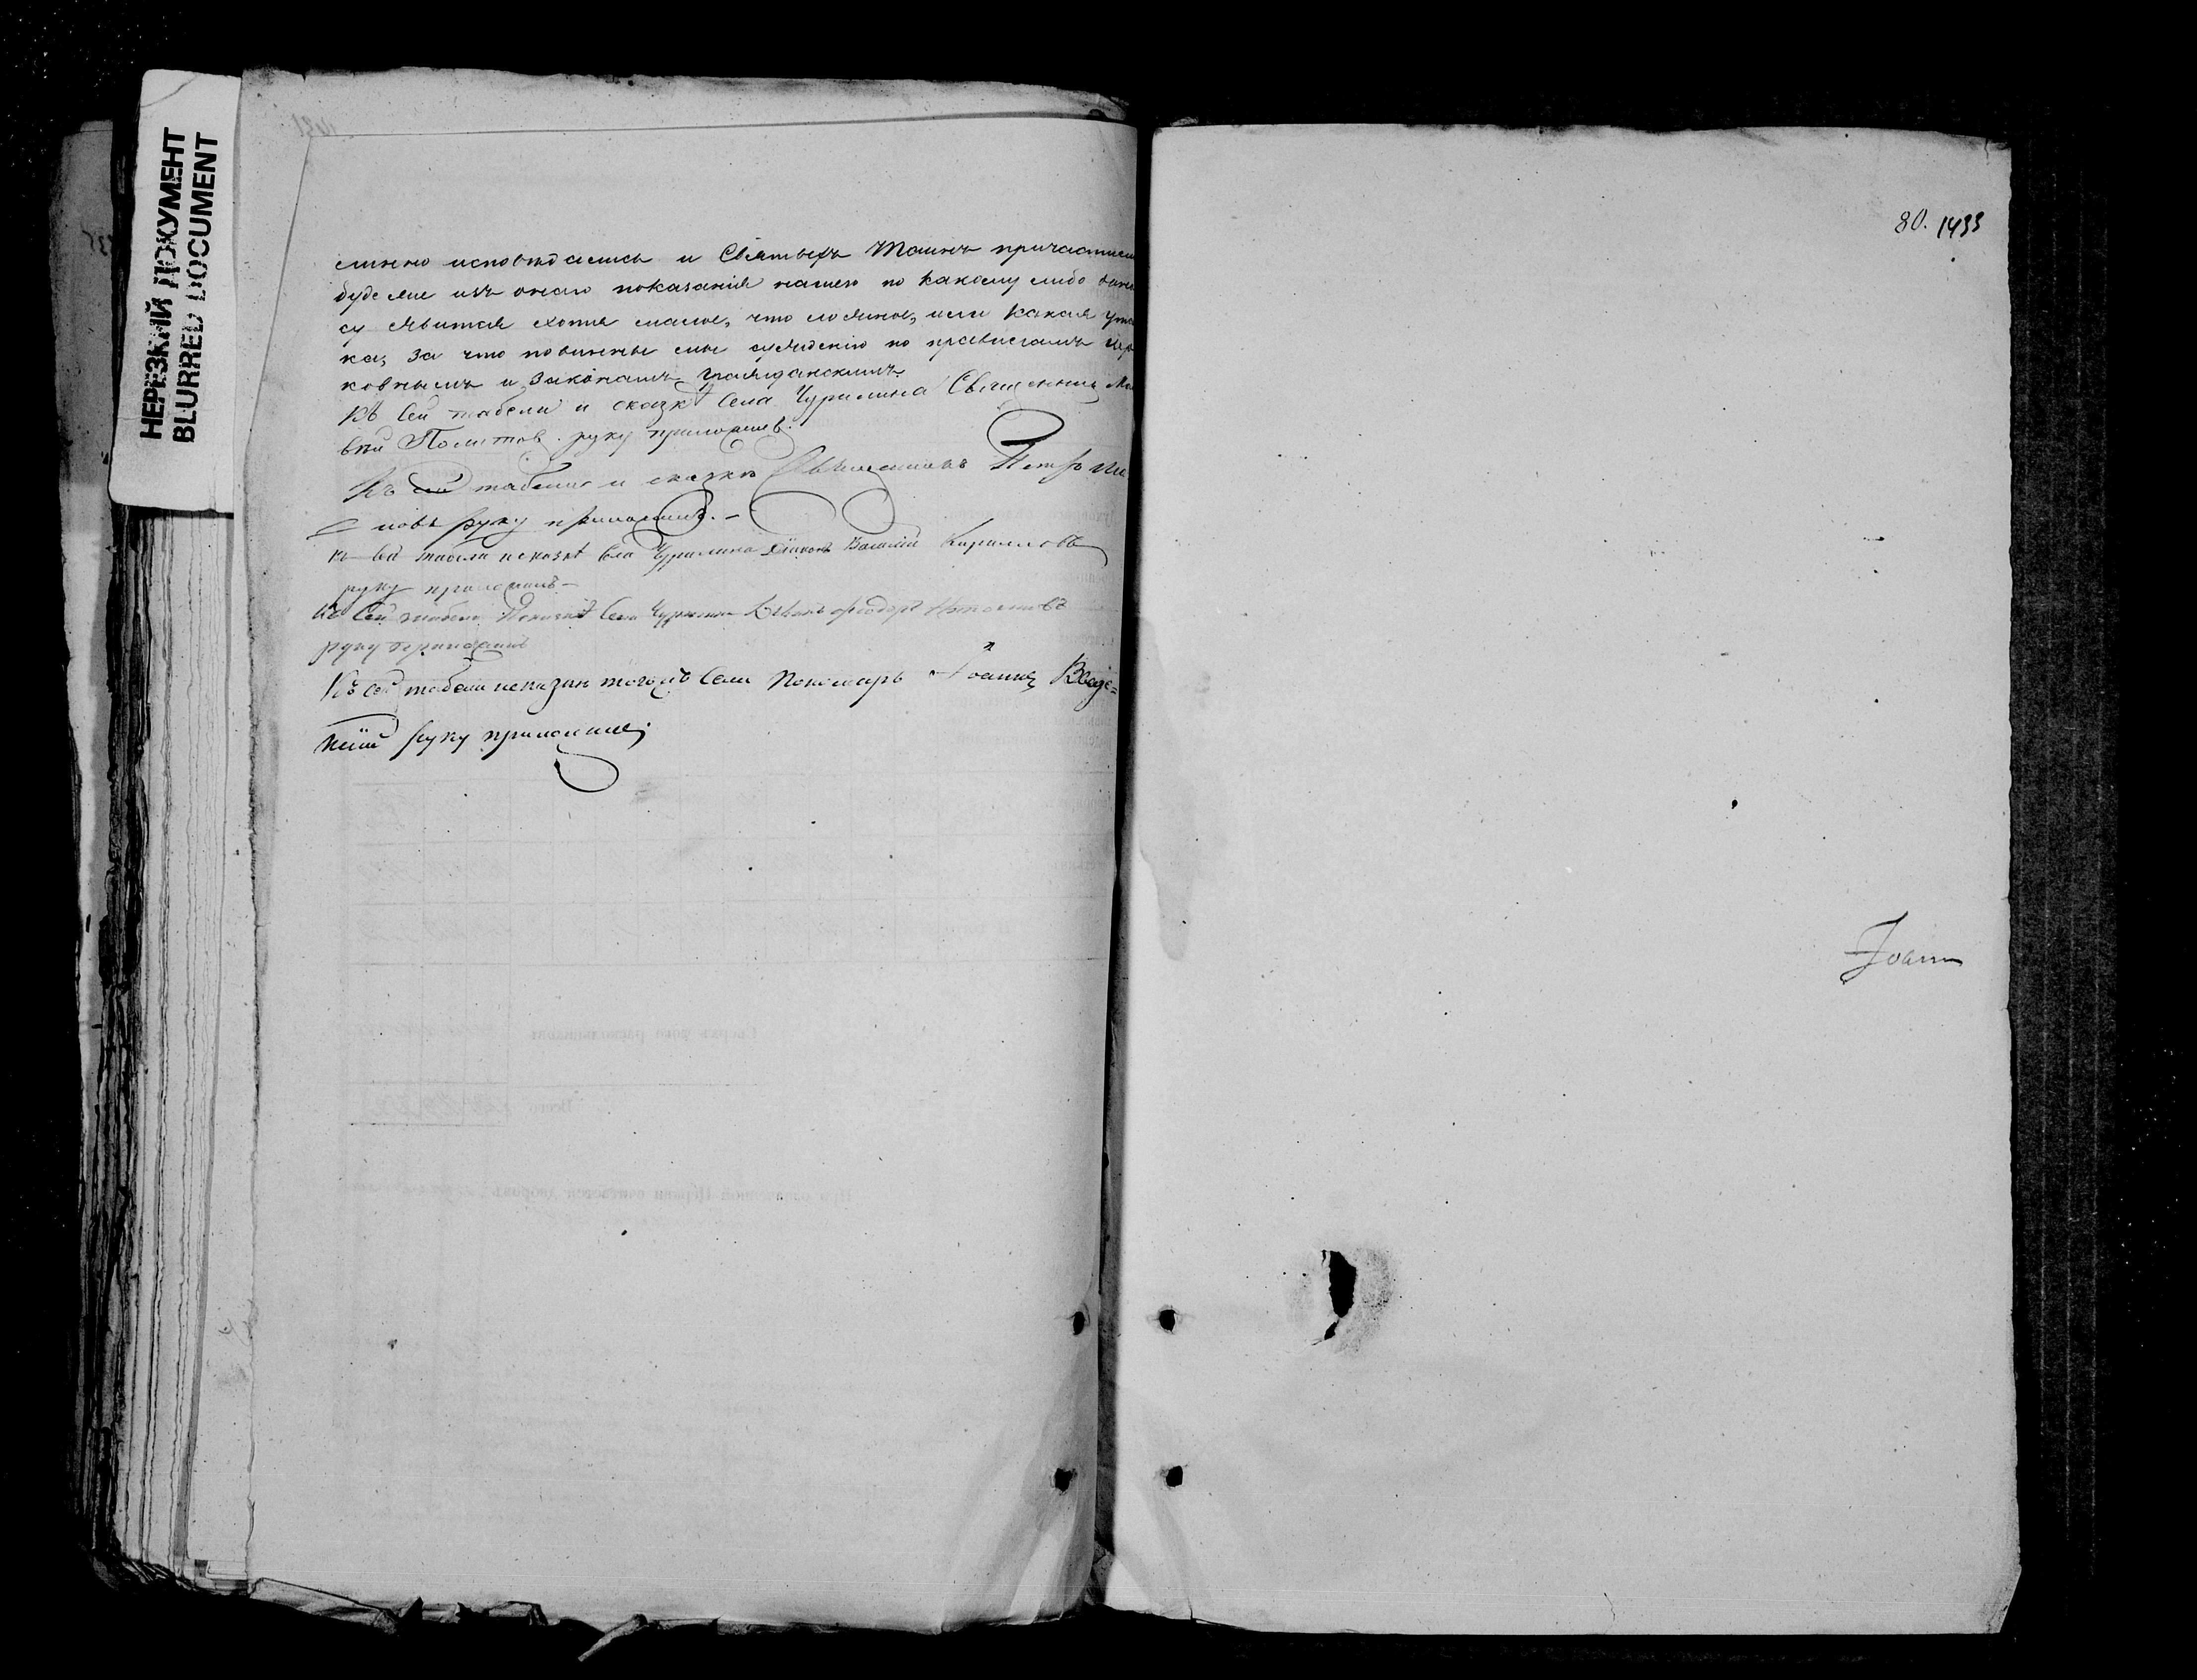 НЕРЕЗКИЙ ДОКУМЕНТ
BLURRED DOCUMENT
слинно исповѣдались и Святыхъ Таинъ причастил
буде же изъ онаго показанія нашего по какому либо
су явится хотя малое, что ложное, или какая ута
ка, за что повинны мы сужденію по правиламъ Цер
ковнымъ и законамъ гражданскимъ.
Къ сей табели и сказкѣ Села Чурилина Священник
руку приложилъ.
Къ сей табели и сказкѣ Священникъ Петръ
новъ руку приложилъ.-
къ сей табели и сказкѣ Села Чурилина Діаконъ Василій Кирилловъ
руку приложилъ-
Къ сей табели и сказкѣ Села Чурилина Дьякъ Федоръ
руку приложилъ
Къ сей табели и сказки тогожъ Села Пономарь Іоаннъ Введе=
нскій руку приложилъ
80. 1433
Іоанн